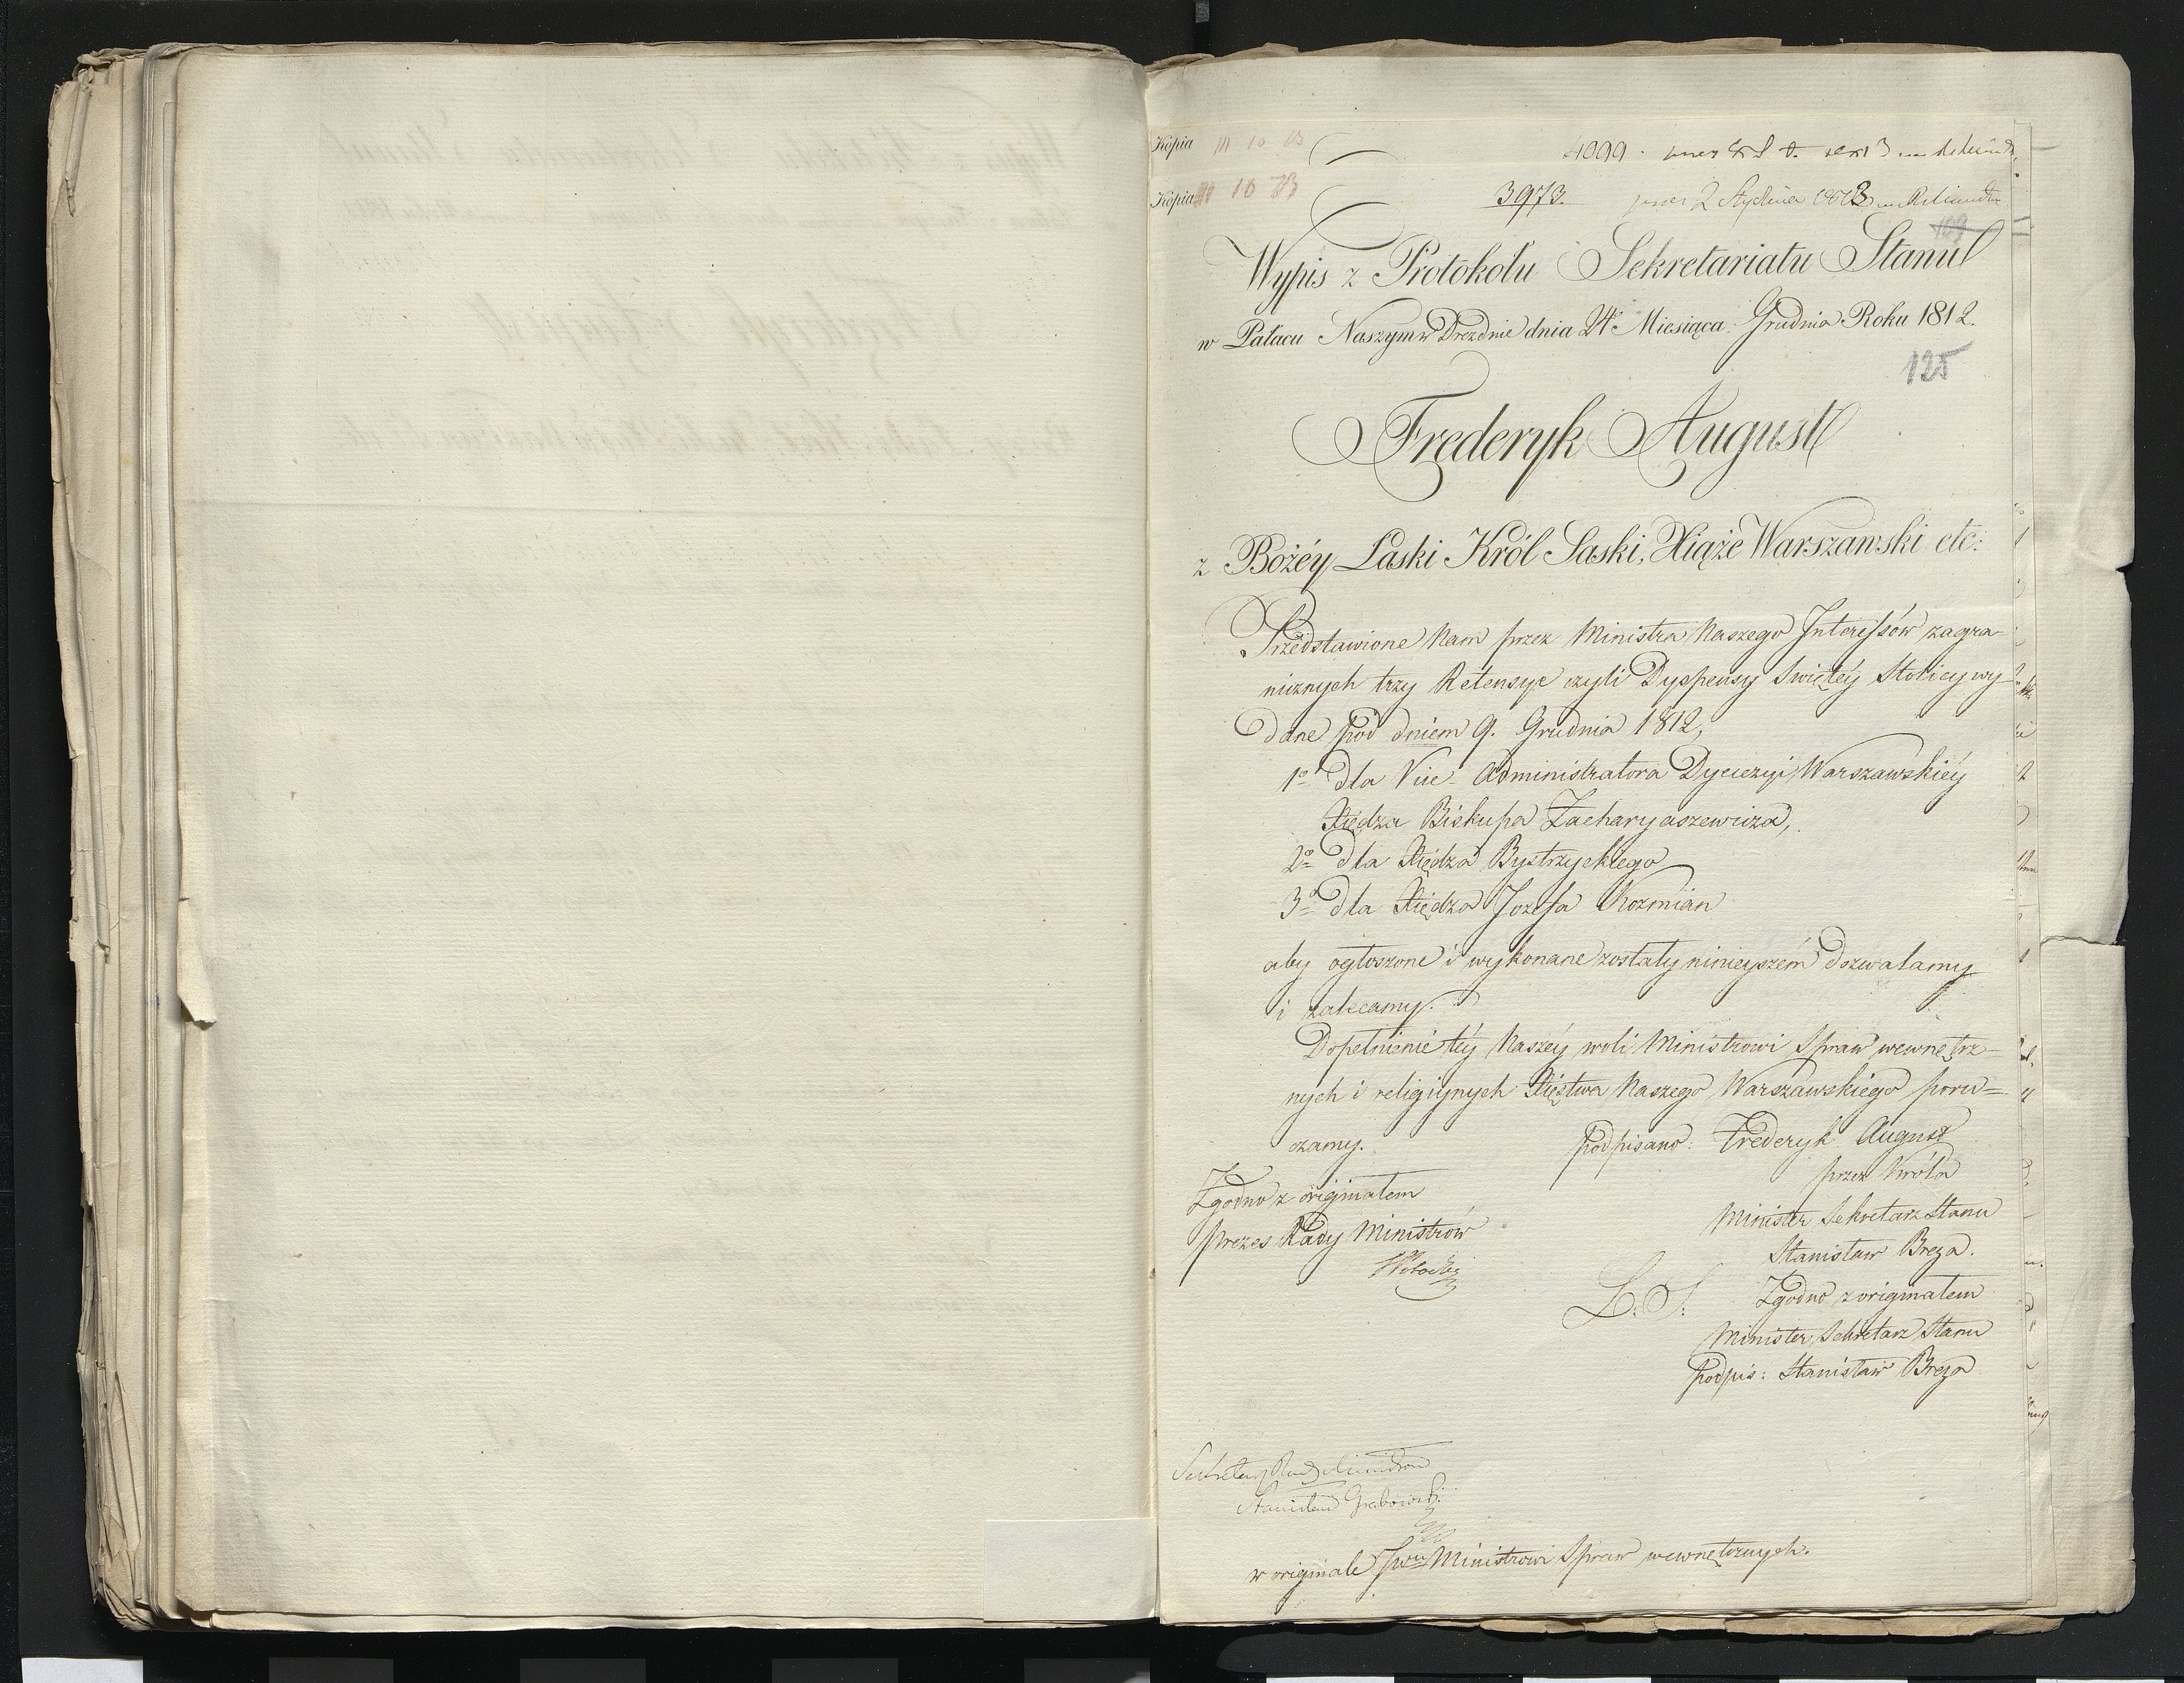 Kopia
4099.
Kopia 3973. 2 Stycznia 1813
109
Wypis z Protokołu Sekretariatu Stanu
w Pałacu Naszym w Dreznie dnia 24 Miesiąca Grudnia Roku 1812.
125
Frederyk August
z Bożéy Łaski Król Saski, Xiąże Warszawski etc:
Przedstawione Nam przez Ministra Naszego Interessów zagra-
nicznych trzy Retensye czyli Dyspensy Swiętéy Stolicy wy-
dane pod dniem 9. Grudnia 1812,
1o dla Vice-Administratora Dyecezyi Warszawskiéy
Xiędza Biskupa Zacharyaszewicza,
2o dla Xiędza Bystrzyckiego
3o dla Xiędza Jozefa Kozmian
aby ogłoszone i wykonane zostały ninieyszém dozwalamy
i zalecamy.
Dopełnienie téy Naszéy woli Ministrowi Spraw wewnętrz-
nych i religiynych Xięstwa Naszego Warszawskiego poru=
czamy.
podpisano: Frederyk August
przez Króla
Minister Sekretarz Stanu
Stanisław Breza.
Zgodno z originałem
Prezes Rady Ministrów
L. S. Zgodno z originałem
Minister Sekretarz Stanu
podpis: Stanisław Breza
Sekretarz Rady Ministrow
Stanisław Grabowski
w originale Jwu Ministrowi Spraw wewnętrznych.